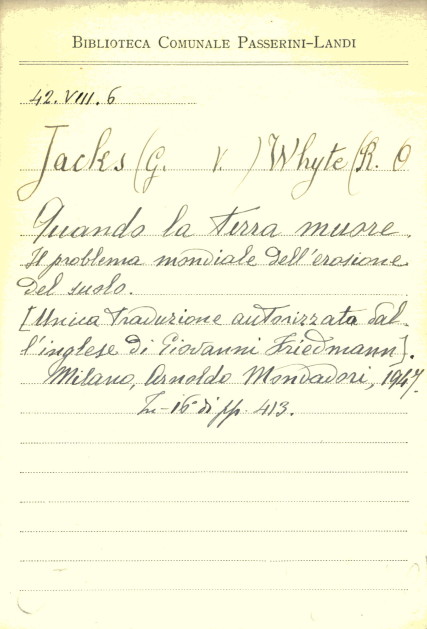 BIBLIOTECA COMUNALE PASSERINI-LANDI
42. VIII. 6
Jacks (G. V.) Whyte (R. O
Quando la terra muore.
Il problema mondiale dell'erosione
del suolo.
[Unica traduzione autorizzata dal-
l'inglese di Giovanni Friedmann].
Milano, Arnoldo Mondadori, 1947.
In-16° di pp. 413.